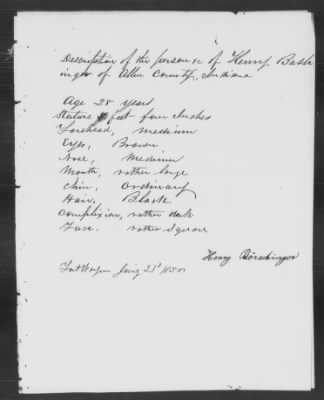 Description of the person &c of Henry Bash
inger of Allen County, Indiana
Age 28 years
Stature feet four Inches
Forehead, Medium
Eyes, Brown
Nose, Medium
Mouth, rather large
Chin, Ordinary
Hair, Black
Complexion, rather dark
Face, rather Square
Henry Börschinger
Fort Wayne 23d 1850